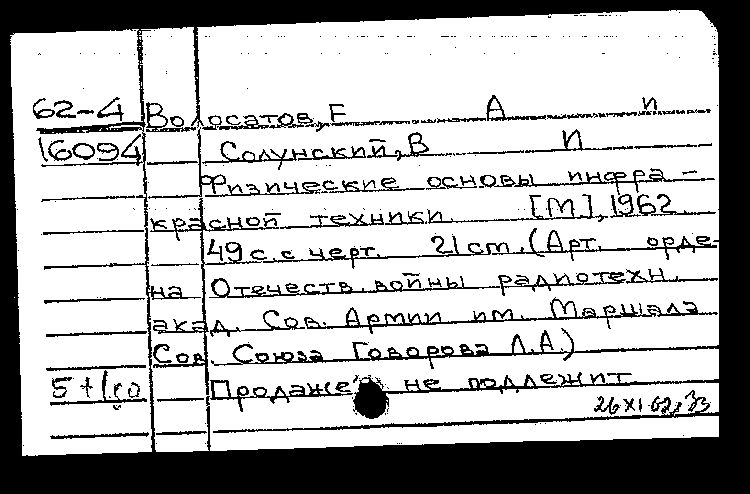 62-4 Волосатов, Е А и
16094 Солунский, В И
Физические основы инфра-
красной техники. [М], 1962
49 с. с черт. 21 cm. (Арт. орде-
на Отечеств. войны радиотехн.
акад. Сов. Армии им. Маршала
Сов. Союза Говорова Л.А.)
Продаже не подлежит
26 XI 62